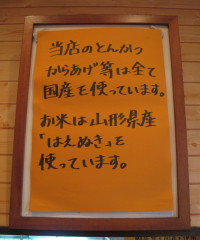 当店のとんかつ
からあげ等は全て
国産を使っています。
お米は山形県産
「はえぬき」を
使っています。